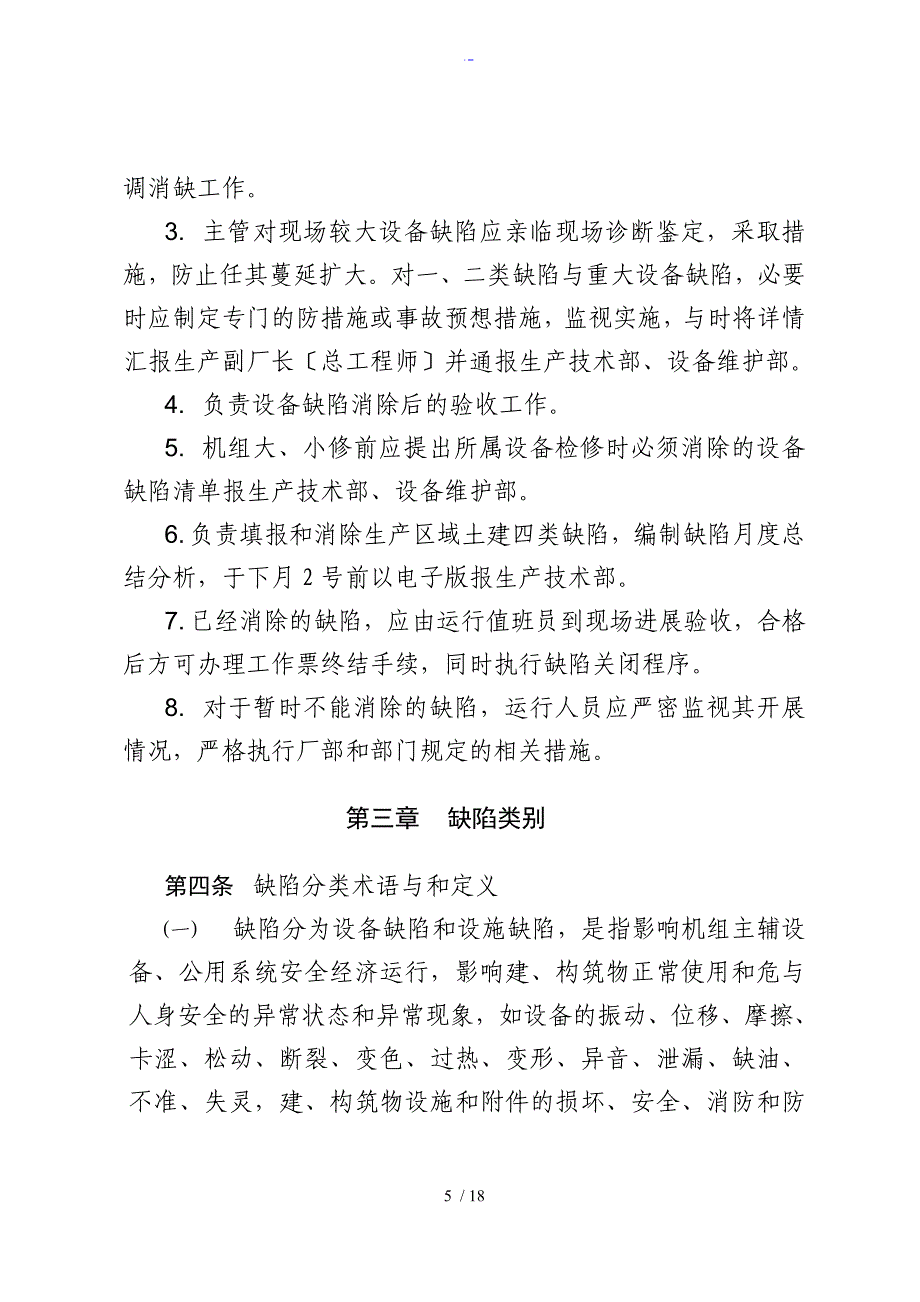 调消缺工作。
3. 主管对现场较大设备缺陷应亲临现场诊断鉴定，采取措
施，防止任其蔓延扩大。对一、二类缺陷与重大设备缺陷，必要
时应制定专门的防措施或事故预想措施，监视实施，与时将详情
汇报生产副厂长〔总工程师〕并通报生产技术部、设备维护部。
4. 负责设备缺陷消除后的验收工作。
5. 机组大、小修前应提出所属设备检修时必须消除的设备
缺陷清单报生产技术部、设备维护部。
6. 负责填报和消除生产区域土建四类缺陷，编制缺陷月度总
结分析，于下月 2 号前以电子版报生产技术部。
7. 已经消除的缺陷，应由运行值班员到现场进展验收，合格
后方可办理工作票终结手续，同时执行缺陷关闭程序。
8. 对于暂时不能消除的缺陷，运行人员应严密监视其开展
情况，严格执行厂部和部门规定的相关措施。
第三章 缺陷类别
第四条 缺陷分类术语与和定义
㈠ 缺陷分为设备缺陷和设施缺陷，是指影响机组主辅设
备、公用系统安全经济运行，影响建、构筑物正常使用和危与
人身安全的异常状态和异常现象，如设备的振动、位移、摩擦、
卡涩、松动、断裂、变色、过热、变形、异音、泄漏、缺油、
不准、失灵，建、构筑物设施和附件的损坏、安全、消防和防
5 / 18